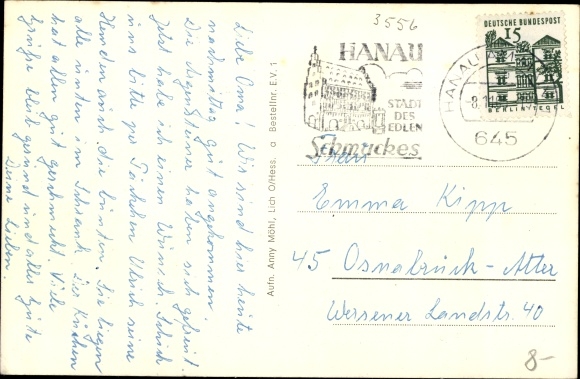 Liebe Oma! Wir sind hier heute
nachmittag gut angekommen.
Die Augsteiner haben sich gefreut.
Jetzt habe ich einen Wunsch. Schick
uns bitte per Päckchen Ulrich seine
Hemden auch die bunten. Sie liegen
alle unten im Schrank. Der Kuchen
hat allen gut geschmeckt. Viele
Grüße bleib gesund und alles Gute
Deine Lieben.
Aufn. Anny Möhl, Lich O/Hess. a Bestellnr. E.V. 1
3556
HANAU
STADT
DES
EDLEN
Schmuckes
HANAU
-8.1
645
DEUTSCHE BUNDESPOST
15
BERLIN/TEGEL
Frau
Emma Kipp
45 Osnabrück-Atter
Wersener Landstr. 40
8-